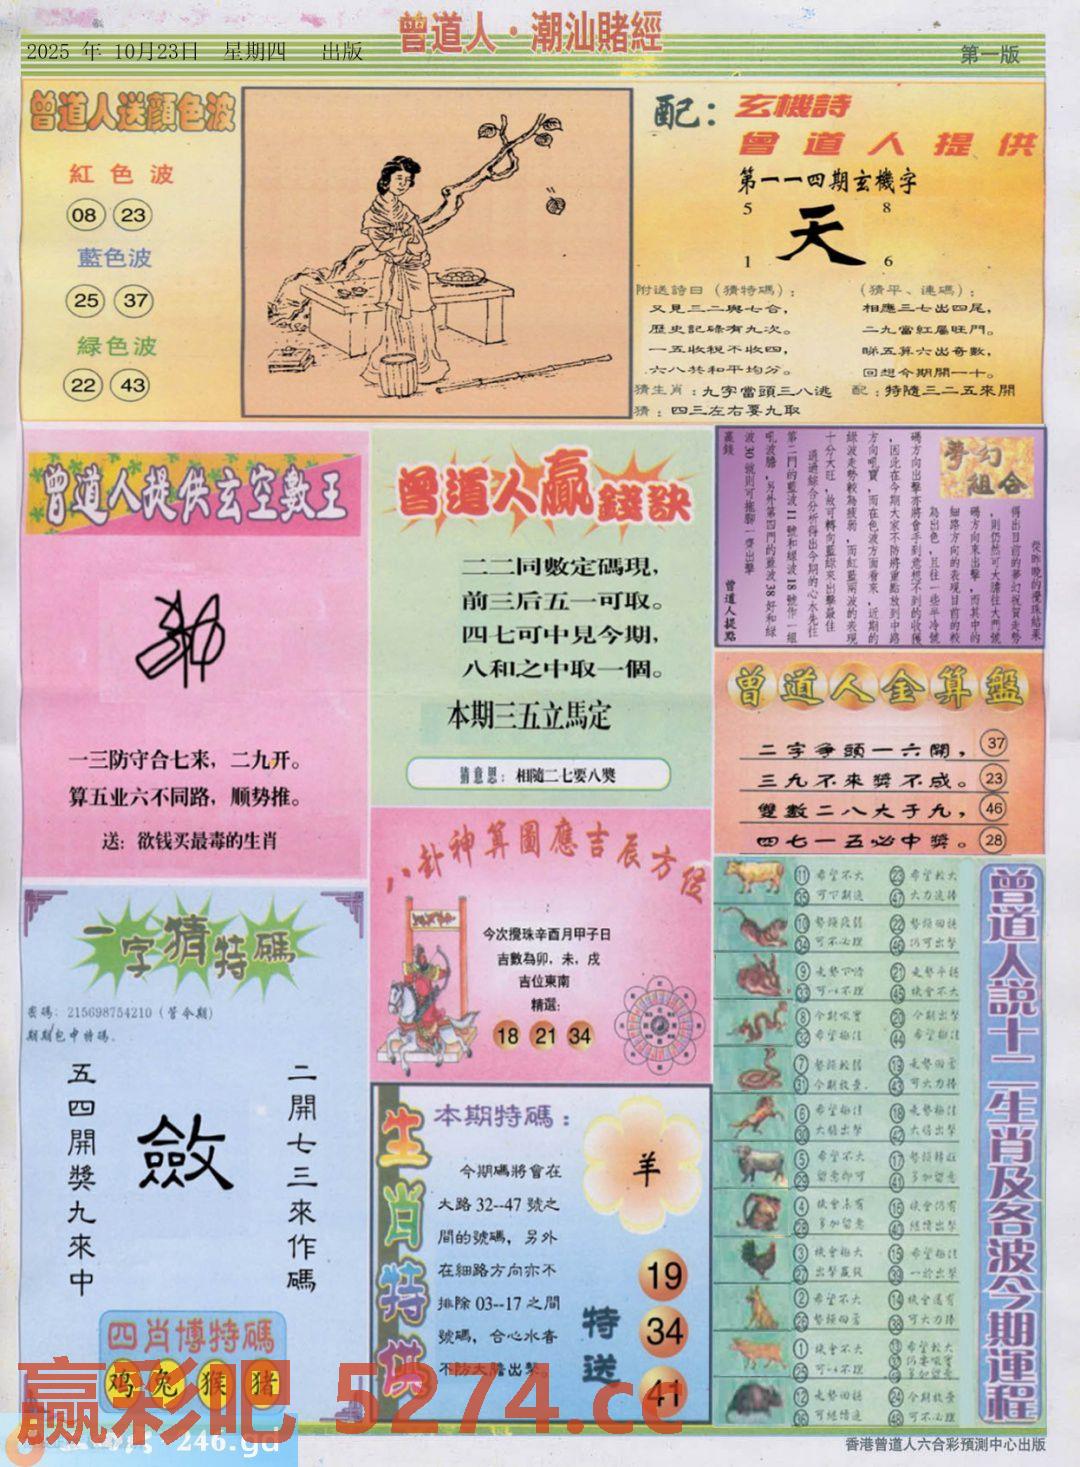 曾道人·潮汕賭經
2025 年 10月23日 星期四 出版
第一版
曾道人送顏色波
紅色波
08 23
藍色波
25 37
緑色波
22 43
配：玄機詩
曾道人提供
第一一四期玄機字
5 8
天
1 6
附送詩曰（猜特碼）：
又見三二與七合，
歷史記碌有九次。
一五收税不收四，
六八共和平均分。
（猜平、連碼）：
相應三七出四尾，
二九當紅屬旺門。
睇五算六出奇數，
回想今期開一十。
猜生肖：九字當頭三八逃
配：特隨三二五來開
猜：四三左右要九取
曾道人提供玄空數王
一三防守合七来，二九开。
算五业六不同路，顺势推。
送：欲钱买最毒的生肖
曾道人贏錢訣
二二同數定碼現，
前三后五一可取。
四七可中見今期，
八和之中取一個。
本期三五立馬定
猜意思：相隨二七要八獎
夢幻組合
從昨晚的攪珠結果
得出目前的夢幻祝賀走勢
，則仍然可大膽往大門號
碼方向來出擊，而其中的
細路方向的表現目前的較
為出色，且往一些半冷號
碼方向出擊亦將會手到意想不到的收穫
，因此在今期大家不防將重點放到中路
方向吼實，而在色波方面看來，近期的
綠波走勢較為疲弱，而紅藍兩波的表現
十分大旺，故可轉向藍綠來出擊最佳
，通過綜合分析得出今期的心水先往
第二門的藍波11號和綠波18號作一組
吼波膽，另外第四門的藍波38好和綠
波30號則可拖腳一齊出擊
贏錢
曾道人提點
曾道人金算盤
二字爭頭一六開，37
三九不來獎不成。23
雙數二八大于九，46
四七一五必中獎。28
八卦神算圖應吉辰方位
今次攪珠辛酉月甲子日
吉數為卯，未，戌
吉位東南
精選：
18 21 34
一字猜特碼
密碼：215698754210（管令期）
期期包中特碼.
二開七三來作碼
斂
五四開獎九來中
四肖博特碼
鸡 兔 猴 猪
生肖特供
本期特碼：
今期碼將會在
大路32--47號之
間的號碼，另外
在細路方向亦不
排除03--17之間
號碼，合心水者
不防大膽出擊。
羊
特送
19
34
41
曾道人説十二生肖及各波今期運程
11 希望不大 23 希望較大
35 可下期追 47 大力追捧
10 勢頭疲弱 22 勢頭回揚
34 可不必理 46 仍可出擊
9 走勢下滑 21 走勢平穩
33 可以不理 45 機會不大
8 今期吼實 20 今期出擊
32 希望極佳 44 希望極佳
7 勢頭較弱 19 走勢回雲
31 今期放棄. 43 可大力捧
6 希望極佳 18 走勢極佳
30 大膽出擊 42 大膽出擊
5 希望不大 17 勢頭轉旺
29 留意即可 41 多加留意
4 機會未有 16 機會仍有
28 多加留意 40 繼續出擊
3 機會極大 15 希望極佳
27 出擊贏錢 39 一於出擊
2 希望不大 14 機會還有
26 勢頭回雲 38 可大力捧
1 希望不大 13 希望較大
25 可以不理
12 走勢回揚 24 今期放棄
36 可繼續追 48 可不必理
赢彩吧 5274.cc
246.gd
香港曾道人六合彩預測中心出版